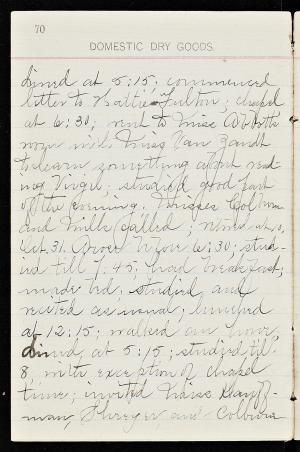 70
DOMESTIC DRY GOODS.
dined at 5:15; commenced
letter to Hattie Fulton; chapel
at 6:30; went to Miss Abbott's
room with Miss Van Zandt
to learn something about read-
ing Virgil; studied good part
of the evening. Misses Colburn
and Mills called; retired at 10.
Oct. 31. Arose before 6:30; stud-
ied till 7.45; had breakfast;
made bed; studied and
recited as usual; lunched
at 12:15; walked an hour;
dined, at 5:15; studied till
8, with exception of chapel
time; invited Misses
man, Shreyer, and Colburn